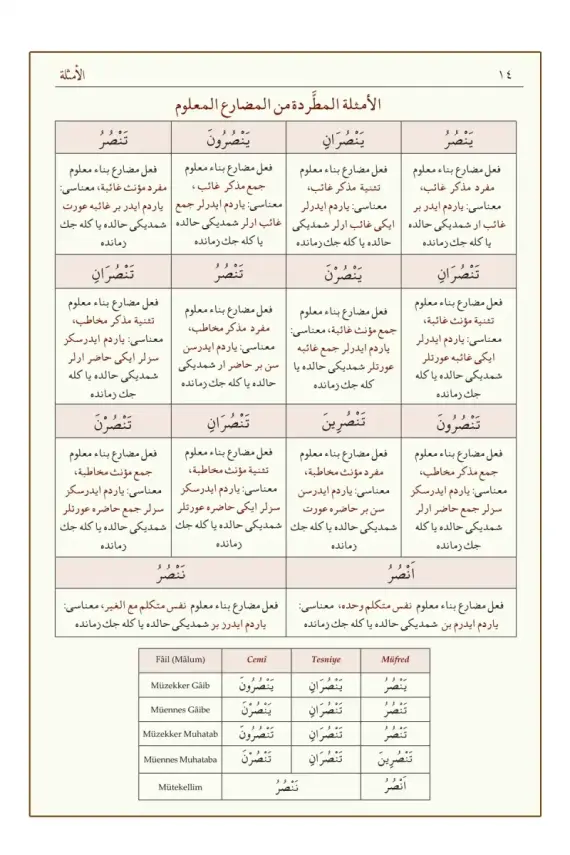 الأمثلة
١٤
الأمثلة المطَّردة من المضارع المعلوم
يَنْصُرُ
يَنْصُرَانِ
يَنْصُرُونَ
تَنْصُرُ
فعل مضارع بناء معلوم
مفرد مذكر غائب،
معناسى: ياردم ايدر بر
غائب ار شمديكى حالده
يا كله جك زمانده
فعل مضارع بناء معلوم
تثنية مذكر غائب،
معناسى: ياردم ايدرلر
ايكى غائب ارلر شمديكى
حالده يا كله جك زمانده
فعل مضارع بناء معلوم
جمع مذكر غائب ،
معناسى: ياردم ايدرلر جمع
غائب ارلر شمديكى حالده
يا كله جك زمانده
فعل مضارع بناء معلوم
مفرد مؤنث غائبة، معناسى:
ياردم ايدر بر غائبه عورت
شمديكى حالده يا كله جك
زمانده
تَنْصُرَانِ
يَنْصُرْنَ
تَنْصُرُ
تَنْصُرَانِ
فعل مضارع بناء معلوم
تثنية مؤنث غائبة،
معناسى: ياردم ايدرلر
ايكى غائبه عورتلر
شمديكى حالده يا كله
جك زمانده
فعل مضارع بناء معلوم
جمع مؤنث غائبة، معناسى:
ياردم ايدرلر جمع غائبه
عورتلر شمديكى حالده يا
كله جك زمانده
فعل مضارع بناء معلوم
مفرد مذكر مخاطب،
معناسى: ياردم ايدرسن
سن بر حاضر ار شمديكى
حالده يا كله جك زمانده
فعل مضارع بناء معلوم
تثنية مذكر مخاطب،
معناسى: ياردم ايدرسكز
سزلر ايكى حاضر ارلر
شمديكى حالده يا كله
جك زمانده
تَنْصُرُونَ
تَنْصُرِينَ
تَنْصُرَانِ
تَنْصُرْنَ
فعل مضارع بناء معلوم
جمع مذكر مخاطب،
معناسى: ياردم ايدرسكز
سزلر جمع حاضر ارلر
شمديكى حالده يا كله
جك زمانده
فعل مضارع بناء معلوم
مفرد مؤنث مخاطبة،
معناسى: ياردم ايدرسن
سن بر حاضره عورت
شمديكى حالده يا كله جك
زمانده
فعل مضارع بناء معلوم
تثنية مؤنث مخاطبة،
معناسى: ياردم ايدرسكز
سزلر ايكى حاضره عورتلر
شمديكى حالده يا كله جك
زمانده
فعل مضارع بناء معلوم
جمع مؤنث مخاطبة،
معناسى: ياردم ايدرسكز
سزلر جمع حاضره عورتلر
شمديكى حالده يا كله جك
زمانده
اَنْصُرُ
نَنْصُرُ
فعل مضارع بناء معلوم نفس متكلم وحده، معناسى:
ياردم ايدرم بن شمديكى حالده يا كله جك زمانده
فعل مضارع بناء معلوم نفس متكلم مع الغير، معناسى:
ياردم ايدرز بز شمديكى حالده يا كله جك زمانده
Fâil (Mâlum) Cemî Tesniye Müfred
Müzekker Gâib يَنْصُرُونَ يَنْصُرَانِ يَنْصُرُ
Müennes Gâibe يَنْصُرْنَ تَنْصُرَانِ تَنْصُرُ
Müzekker Muhatab تَنْصُرُونَ تَنْصُرَانِ تَنْصُرُ
Müennes Muhataba تَنْصُرْنَ تَنْصُرَانِ تَنْصُرِينَ
Mütekellim نَنْصُرُ اَنْصُرُ